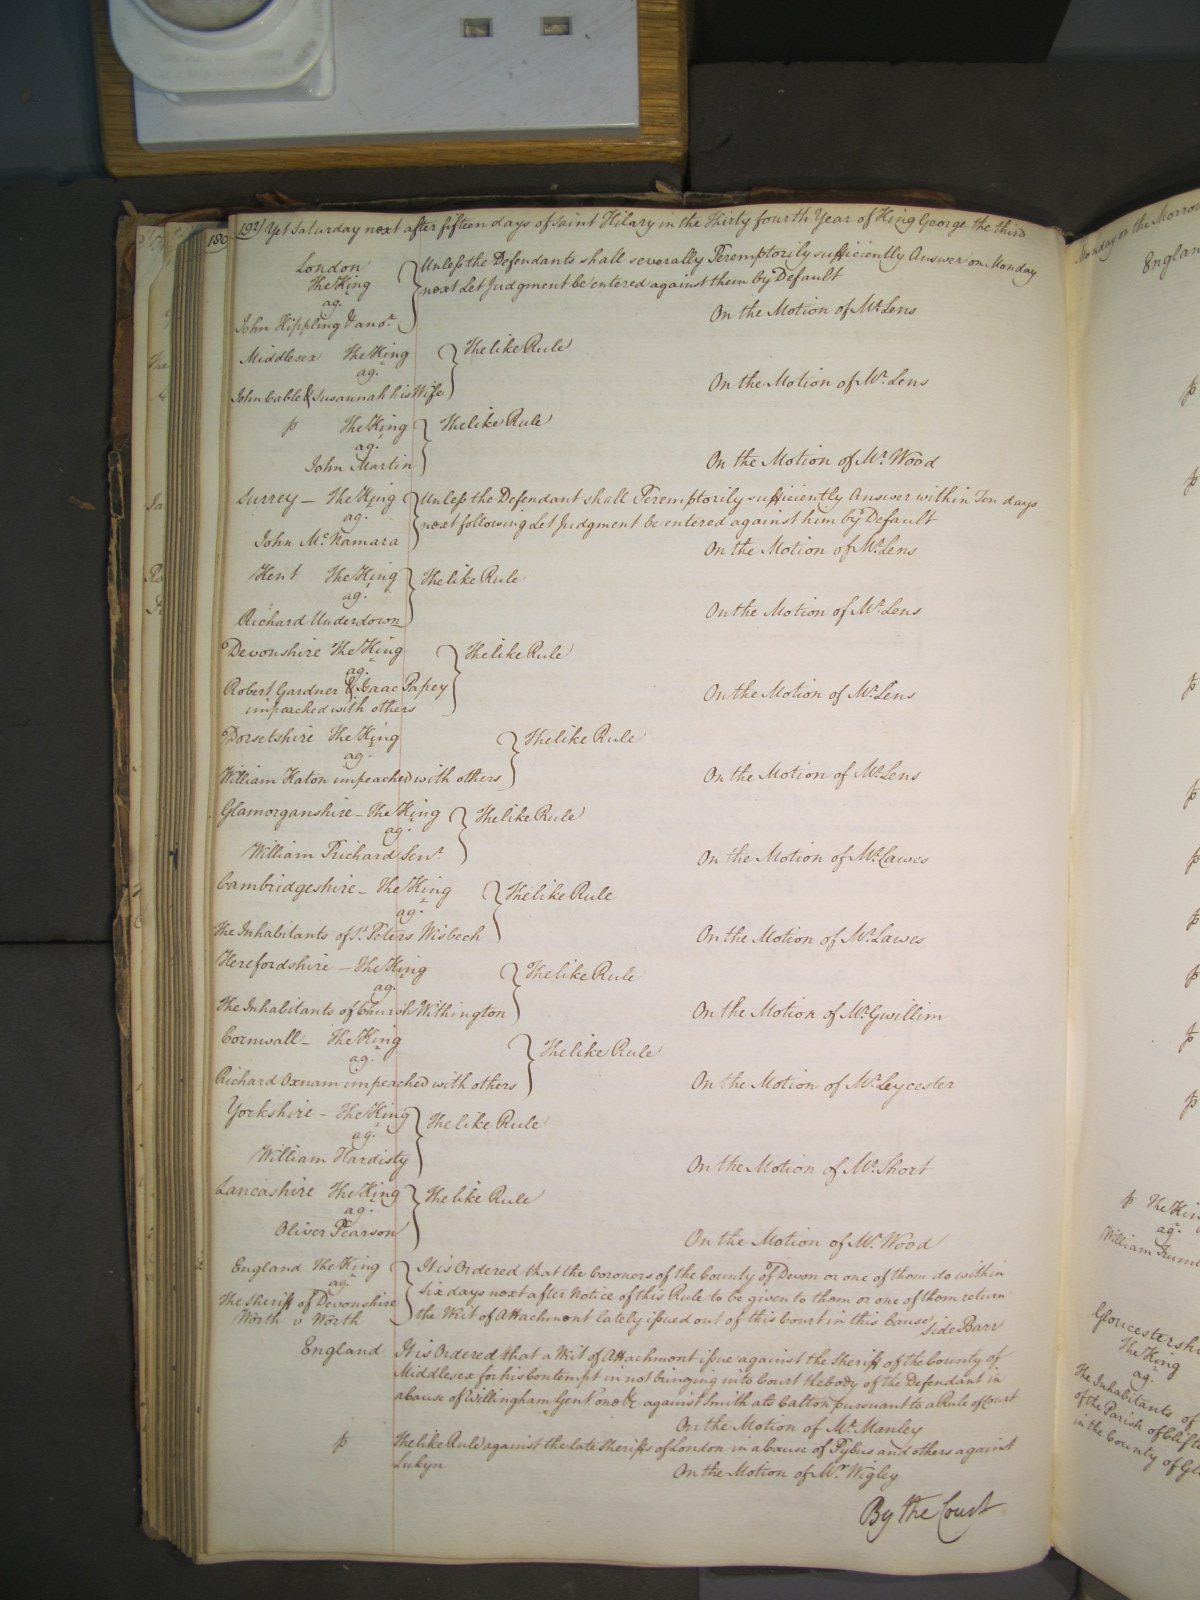 192 Yet Saturday next after fifteen days of Saint Hilary in the Thirty fourth Year of King George the third
180
London
The King
ag.
John Kippling & anor.
Unless the Defendants shall severally Peremptorily sufficiently Answer on Monday
next Let Judgment be entered against them by Default
On the Motion of Mr. Lens
Middlesex The King
ag.
John Cable & Susannah his Wife
The like Rule
On the Motion of Mr. Lens
p The King
ag.
John Martin
The like Rule
On the Motion of Mr. Wood
Surrey – The King
ag.
John McNamara
Unless the Defendant shall Peremptorily sufficiently Answer within Ten days
next following Let Judgment be entered against him by Default
On the Motion of Mr. Lens
Kent The King
ag.
Richard Underdown
The like Rule
On the Motion of Mr. Lens
Devonshire The King
ag.
Robert Gardner & Isaac Papey
impeached with others
The like Rule
On the Motion of Mr. Lens
Dorsetshire The King
ag.
William Haton impeached with others
The like Rule
On the Motion of Mr. Lens
Glamorganshire – The King
ag.
William Prichard Senr.
The like Rule
On the Motion of Mr. Lawes
Cambridgeshire – The King
ag.
The Inhabitants of St. Peters Wisbech
The like Rule
On the Motion of Mr. Lawes
Herefordshire – The King
ag.
The Inhabitants of Church Withington
The like Rule
On the Motion of Mr. Gwillim
Cornwall – The King
ag.
Richard Oxnam impeached with others
The like Rule
On the Motion of Mr. Leycester
Yorkshire – The King
ag.
William Hardisty
The like Rule
On the Motion of Mr. Short
Lancashire The King
ag.
Oliver Pearson
The like Rule
On the Motion of Mr. Wood
England The King
ag.
The Sheriff of Devonshire
Worth v Worth
It is Ordered that the Coroners of the County of Devon or one of them do within
Six days next after Notice of this Rule to be given to them or one of them return
the Writ of Attachment lately issued out of this Court in this Cause
Side Barr
England It is Ordered that a Writ of Attachment issue against the Sheriff of the County of
Middlesex for his Contempt in not bringing into Court the body of the Defendant in
a Cause of Willingham Gent. one &c against Smith ats Calton pursuant to a Rule of Court
On the Motion of Mr. Manley
p The like Rule against the late Sheriffs of London in a Cause of Pybus and others against
Lukyn
On the Motion of Mr. Wigley
By the Court
Monday on the Morrow
England
p
p
p
p
p
p
p
p
p
p The King
ag.
William
Gloucestershire
The King
ag.
The Inhabitants of
of the Parish of
in the County of